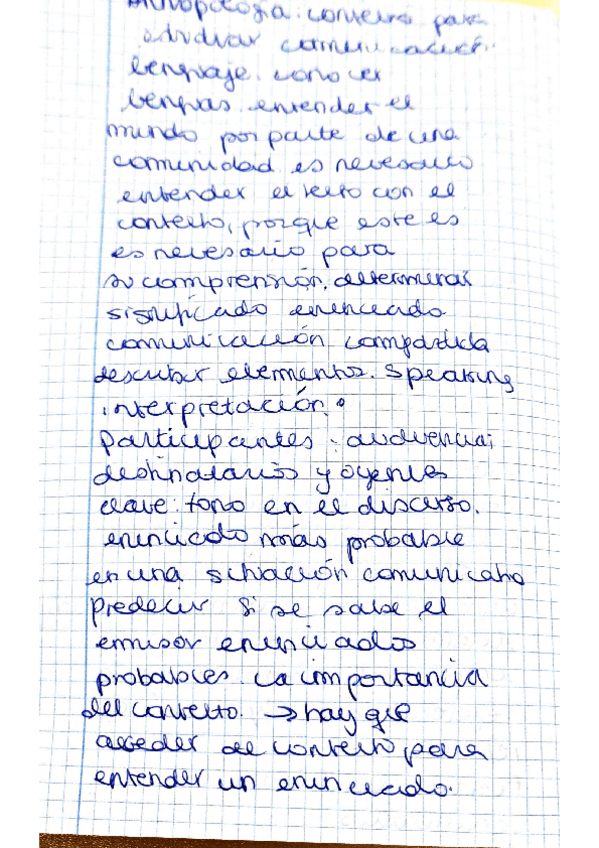 Antropología: contexto para
estudiar comunicación.
lenguaje. conocer
lenguas. entender el
mundo por parte de una
comunidad. es necesario
entender el texto con el
contexto, porque este es
es necesario para
su comprensión. determinar
significado enunciado
comunicación compartida
describir elementos. Speaking
interpretación.
participantes: audiencia;
destinatarios y oyentes
clave: tono en el discurso.
enunciado más probable
en una situación comunicativa
predecir si se sabe el
emisor enunciados
probables. La importancia
del contexto. → hay que
acceder al contexto para
entender un enunciado.